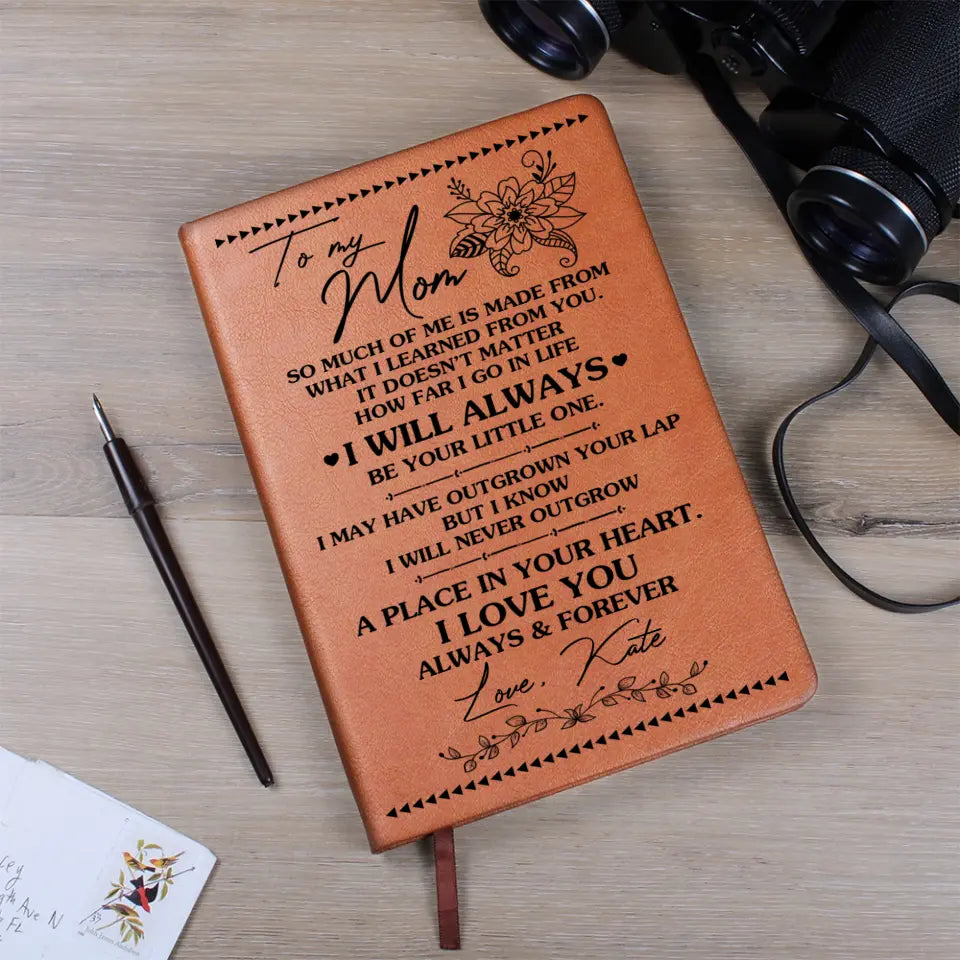 To my
Mom
SO MUCH OF ME IS MADE FROM
WHAT I LEARNED FROM YOU.
IT DOESN'T MATTER
HOW FAR I GO IN LIFE
I WILL ALWAYS
BE YOUR LITTLE ONE.
I MAY HAVE OUTGROWN YOUR LAP
BUT I KNOW
I WILL NEVER OUTGROW
A PLACE IN YOUR HEART.
I LOVE YOU
ALWAYS & FOREVER
Love, Kate
Ave N
FL
37
John James Audubon